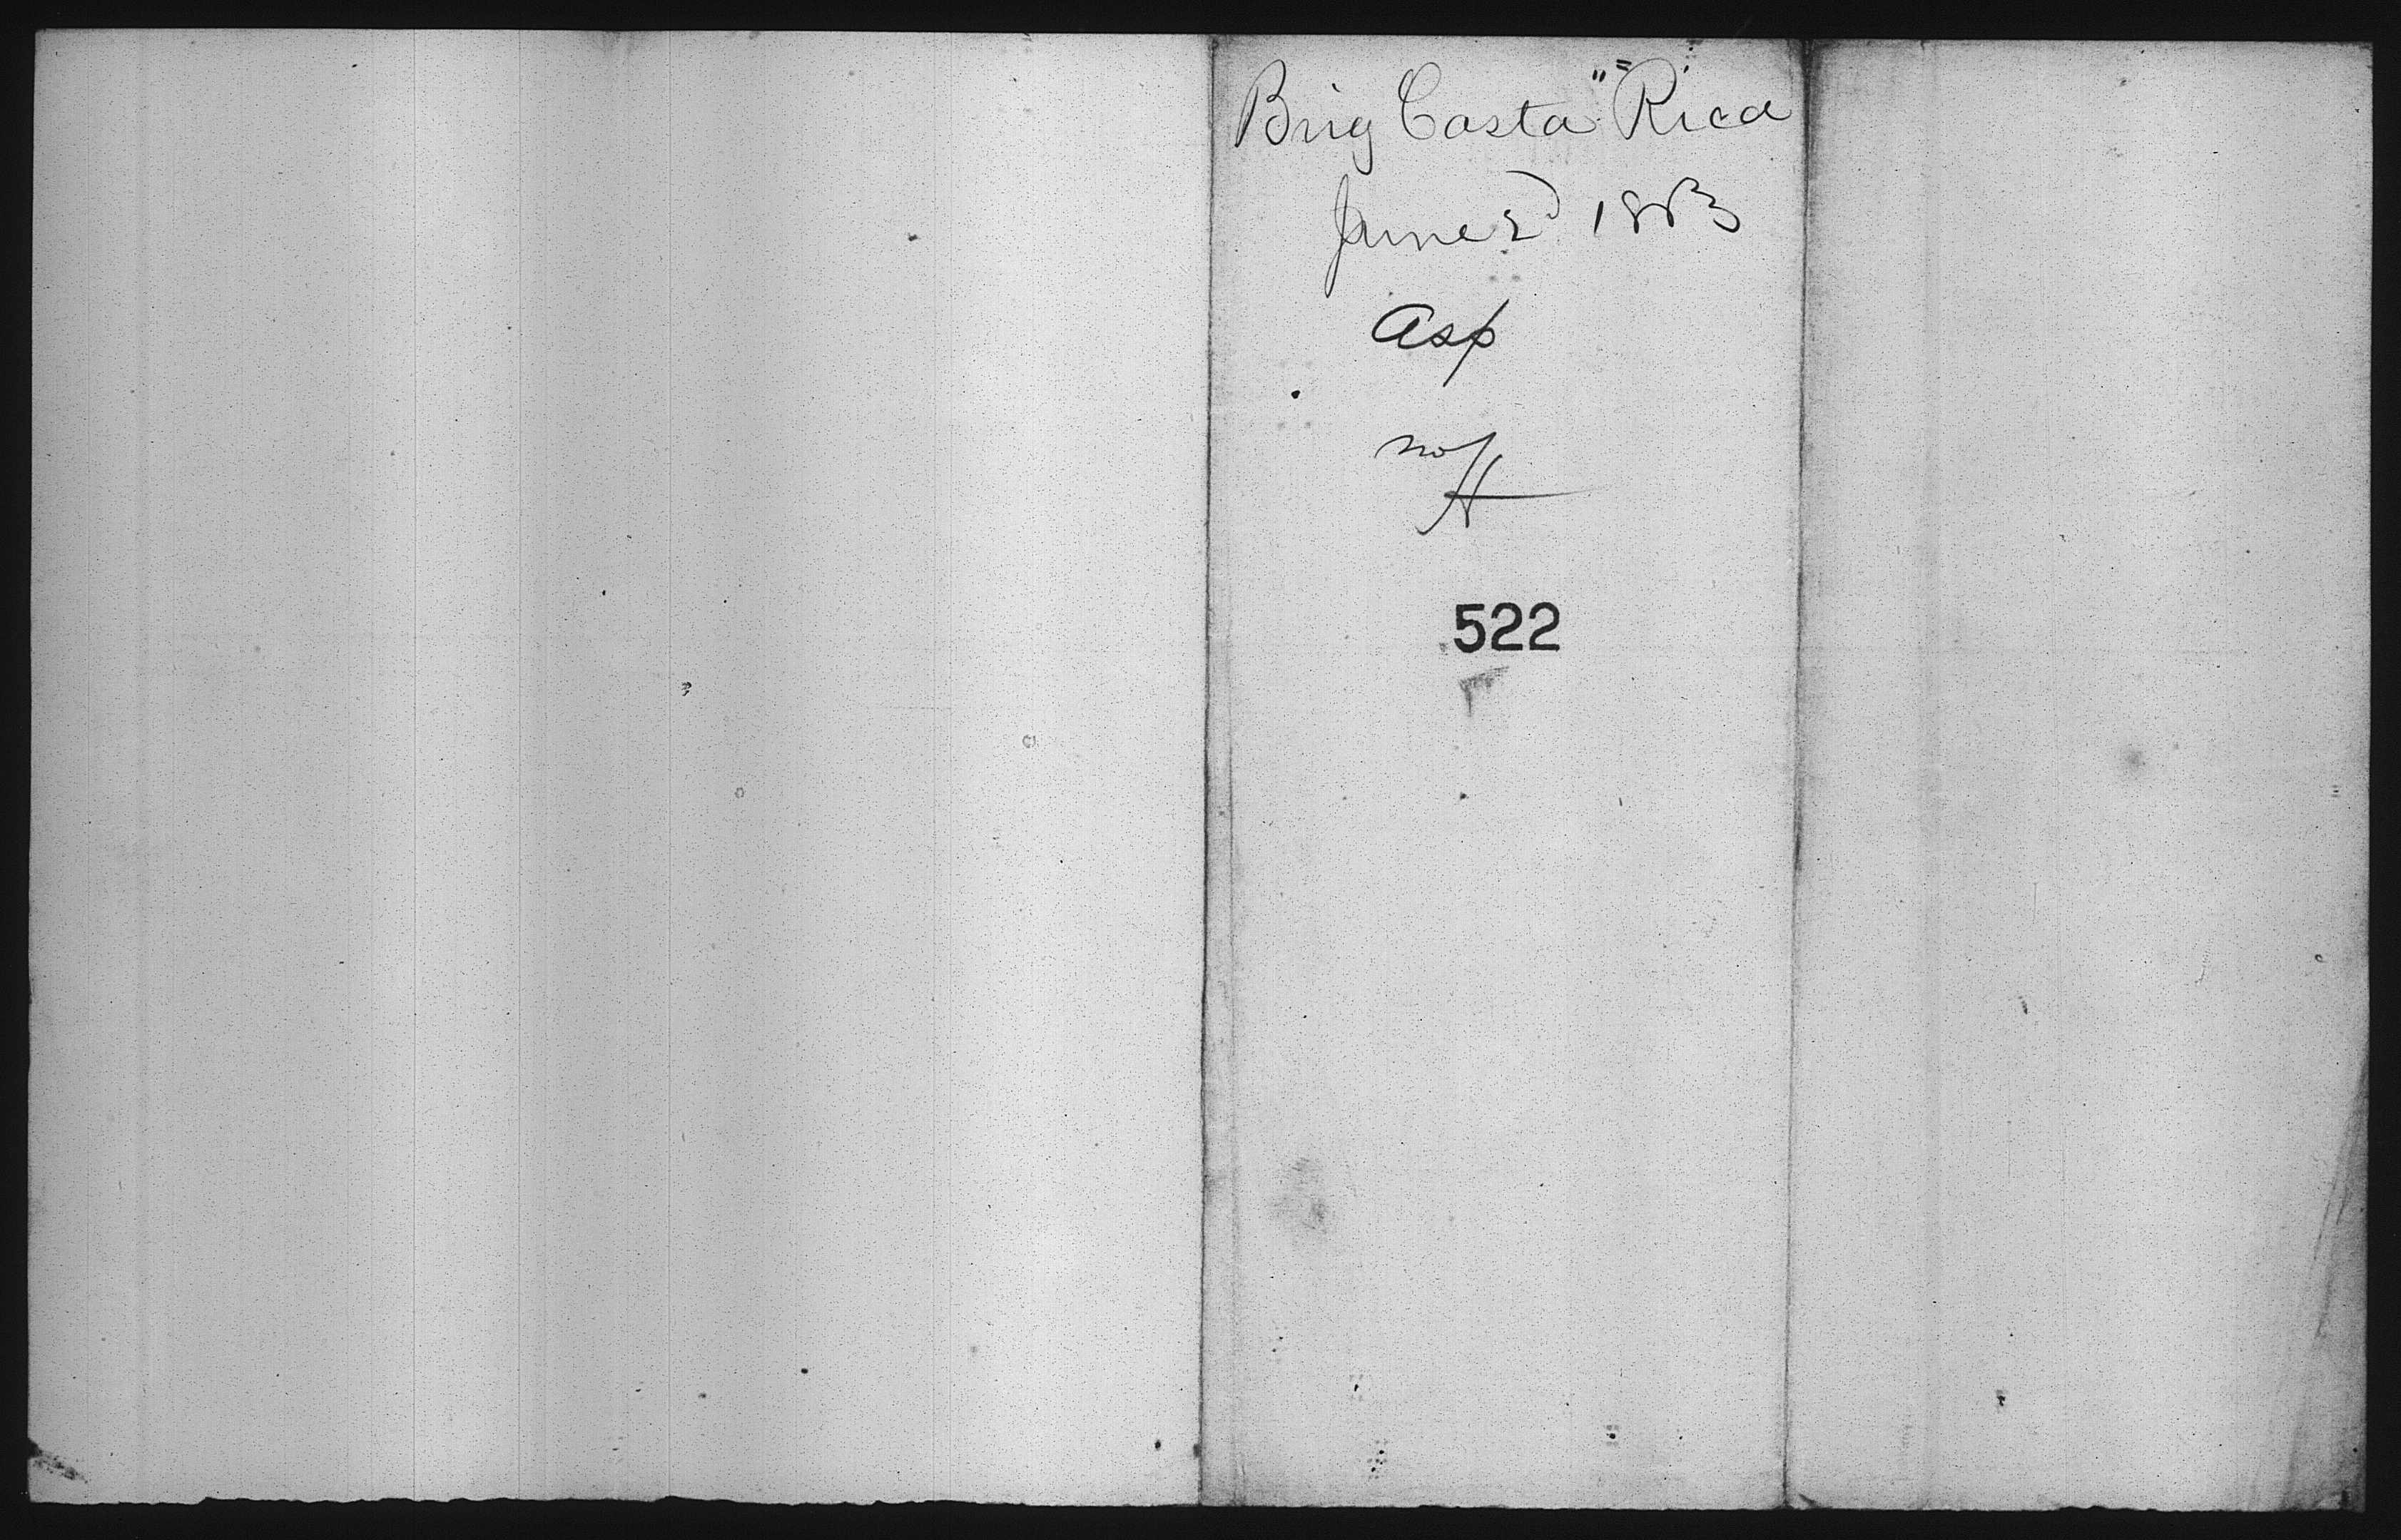 Brig Costa "=Rica
June 2d 1883
Asp
522